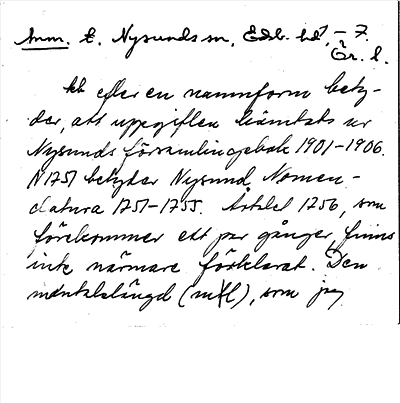 Anm. t. Nysunds sn, Edsb. hd, – 7.
Ör. l.
kb efter en namnform bety-
der, att uppgiften hämtats ur
Nysunds församlingsbok 1901–1906.
N 1751 betyder Nysund, Nomen-
clatura 1751–1755. Årtalet 1756, som
förekommer ett par gånger, finns
inte närmare förklarat. Den
mantalslängd (mtl), som jag